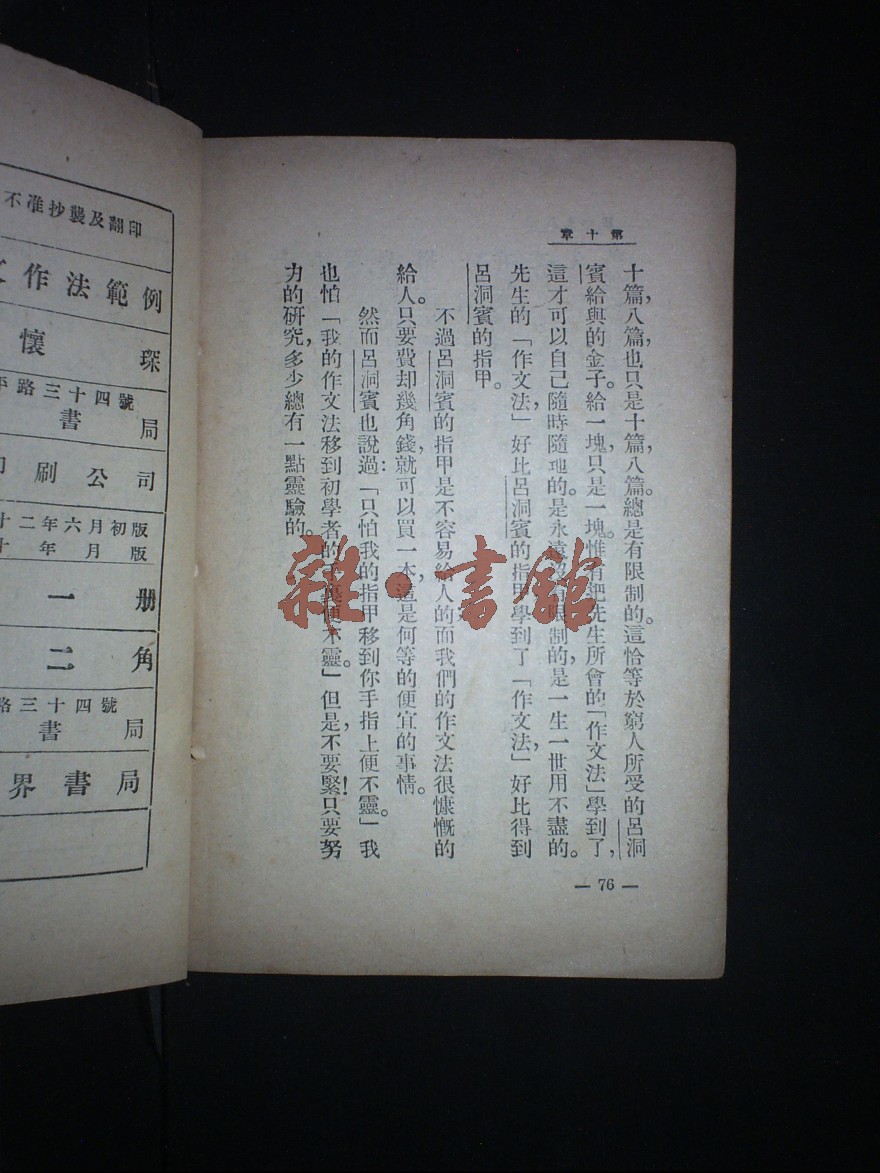 第十章
十篇，八篇，也只是十篇，八篇。總是有限制的。這恰等於窮人所受的呂洞
賓給與的金子。給一塊，只是一塊。惟有把先生所會的「作文法」學到了，
這才可以自己隨時隨地的。是永遠沒有限制的，是一生一世用不盡的。
先生的「作文法，」好比呂洞賓的指甲學到了「作文法，」好比得到
呂洞賓的指甲。
不過呂洞賓的指甲是不容易給人的而我們的作文法很慷慨的
給人。只要費却幾角錢，就可以買一本，這是何等的便宜的事情。
然而呂洞賓也說過：「只怕我的指甲移到你手指上便不靈。」我
也怕「我的作文法移到初學者的手裏便不靈。」但是，不要緊！只要努
力的研究，多少總有一點靈驗的。
— 76 —
不准抄襲及翻印
作法範例
懷琛
路三十四號
書局
刷公司
十二年六月初版
十年月版
一册
二角
路三十四號
書局
界書局
雜·書館